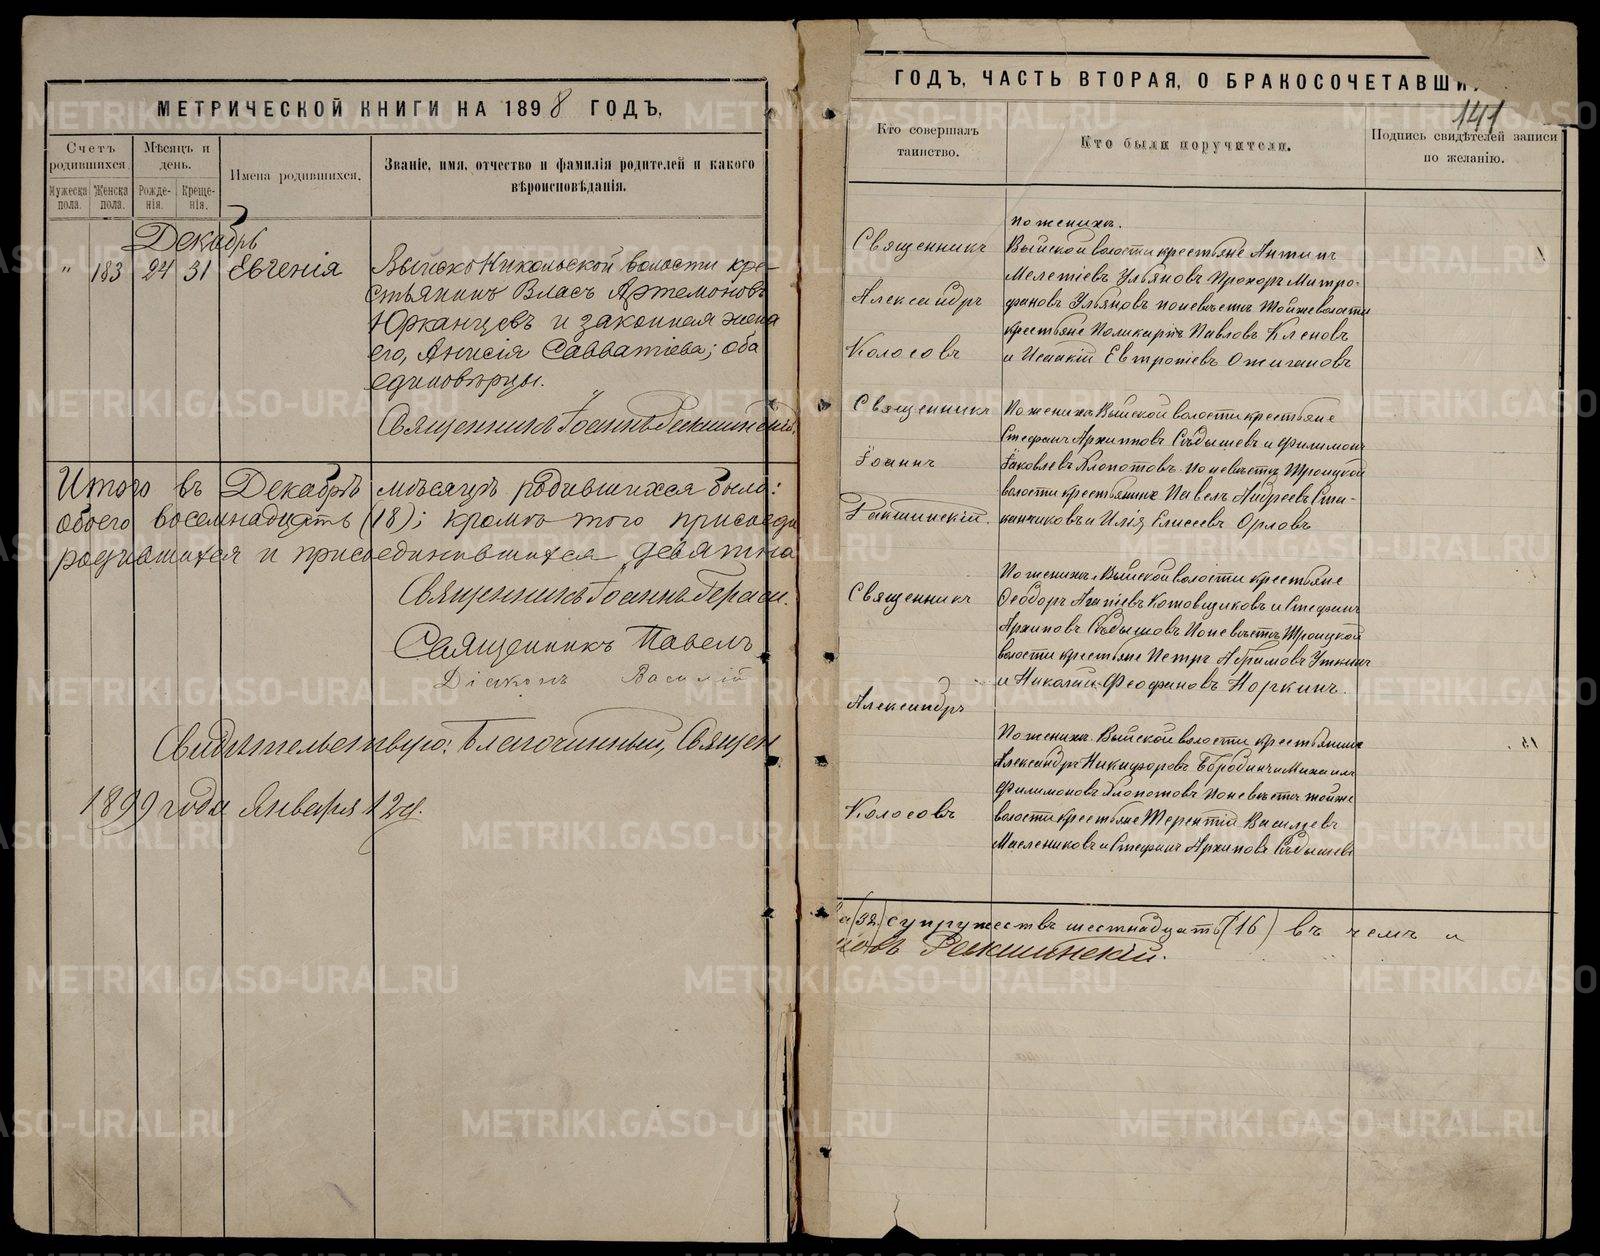 МЕТРИЧЕСКОЙ КНИГИ НА 1898 ГОДЪ,
Счетъ родившихся.
Мѣсяцъ и день.
Имена родившихся.
Званіе, имя, отчество и фамилія родителей и какого вѣроисповѣданія.
Мужеска пола.
Женска пола.
Рожде-нія.
Креще-нія.
Декабрь
" 183 24 31 Евгенія
Выйско Никольской волости кре-
стьянинъ Власъ Артемоновъ
Юрканцевъ и законная жена
его, Анисія Савватіева; оба
единовѣрцы.
Священникъ Іоаннъ Ракшинскій.
Итого въ Декабрѣ мѣсяцѣ родившихся было:
обоего восемнадцать (18); кромѣ того присоеди
родившихся и присоединившихся девятна
Священникъ Іоаннъ Гераси.
Священникъ Павелъ
Діаконъ Василій
Свидѣтельствую: Благочинный, Священ
1899 года Января 12 д.
ГОДЪ, ЧАСТЬ ВТОРАЯ, О БРАКОСОЧЕТАВШИ
141
Кто совершалъ таинство.
Кто были поручители.
Подпись свидѣтелей записи по желанію.
Священникъ
Александръ
Колосовъ
По женихѣ.
Выйской волости крестьяне Антипъ
Мелетіевъ Ульяновъ Прохоръ Митро-
фановъ Ульяновъ по невѣстѣ той же волости
крестьяне Поликарпъ Павловъ Кленовъ
и Исаакій Евтропіевъ Ожигановъ
Священникъ
Іоаннъ
Ракшинскій.
По женихѣ Выйской волости крестьяне
Стефанъ Архиповъ Сѣдышевъ и Филимонъ
Іаковлевъ Клопотовъ. По невѣстѣ Троицкой
волости крестьяне Павелъ Андреевъ Ста-
канчиковъ и Илія Елисеевъ Орловъ
Священникъ
Александръ
Колосовъ
По женихѣ Выйской волости крестьяне
Ѳеодоръ Агапіевъ Котовщиковъ и Стефанъ
Архиповъ Сѣдышовъ По невѣстѣ Троицкой
волости крестьяне Петръ Абрамовъ Уткинъ
и Николай Феофановъ Норкинъ.
По женихѣ Выйской волости крестьяне
Александръ Никифоровъ Бородинъ и Михаилъ
Филимоновъ Клопотовъ По невѣстѣ той же
волости крестьяне Терентій Васильевъ
Маслениковъ и Стефанъ Архиповъ Сѣдышевъ
а (32) супружествъ шестнадцать (16) въ чемъ и
новъ Ракшинскій.
METRIKI.GASO-URAL.RU